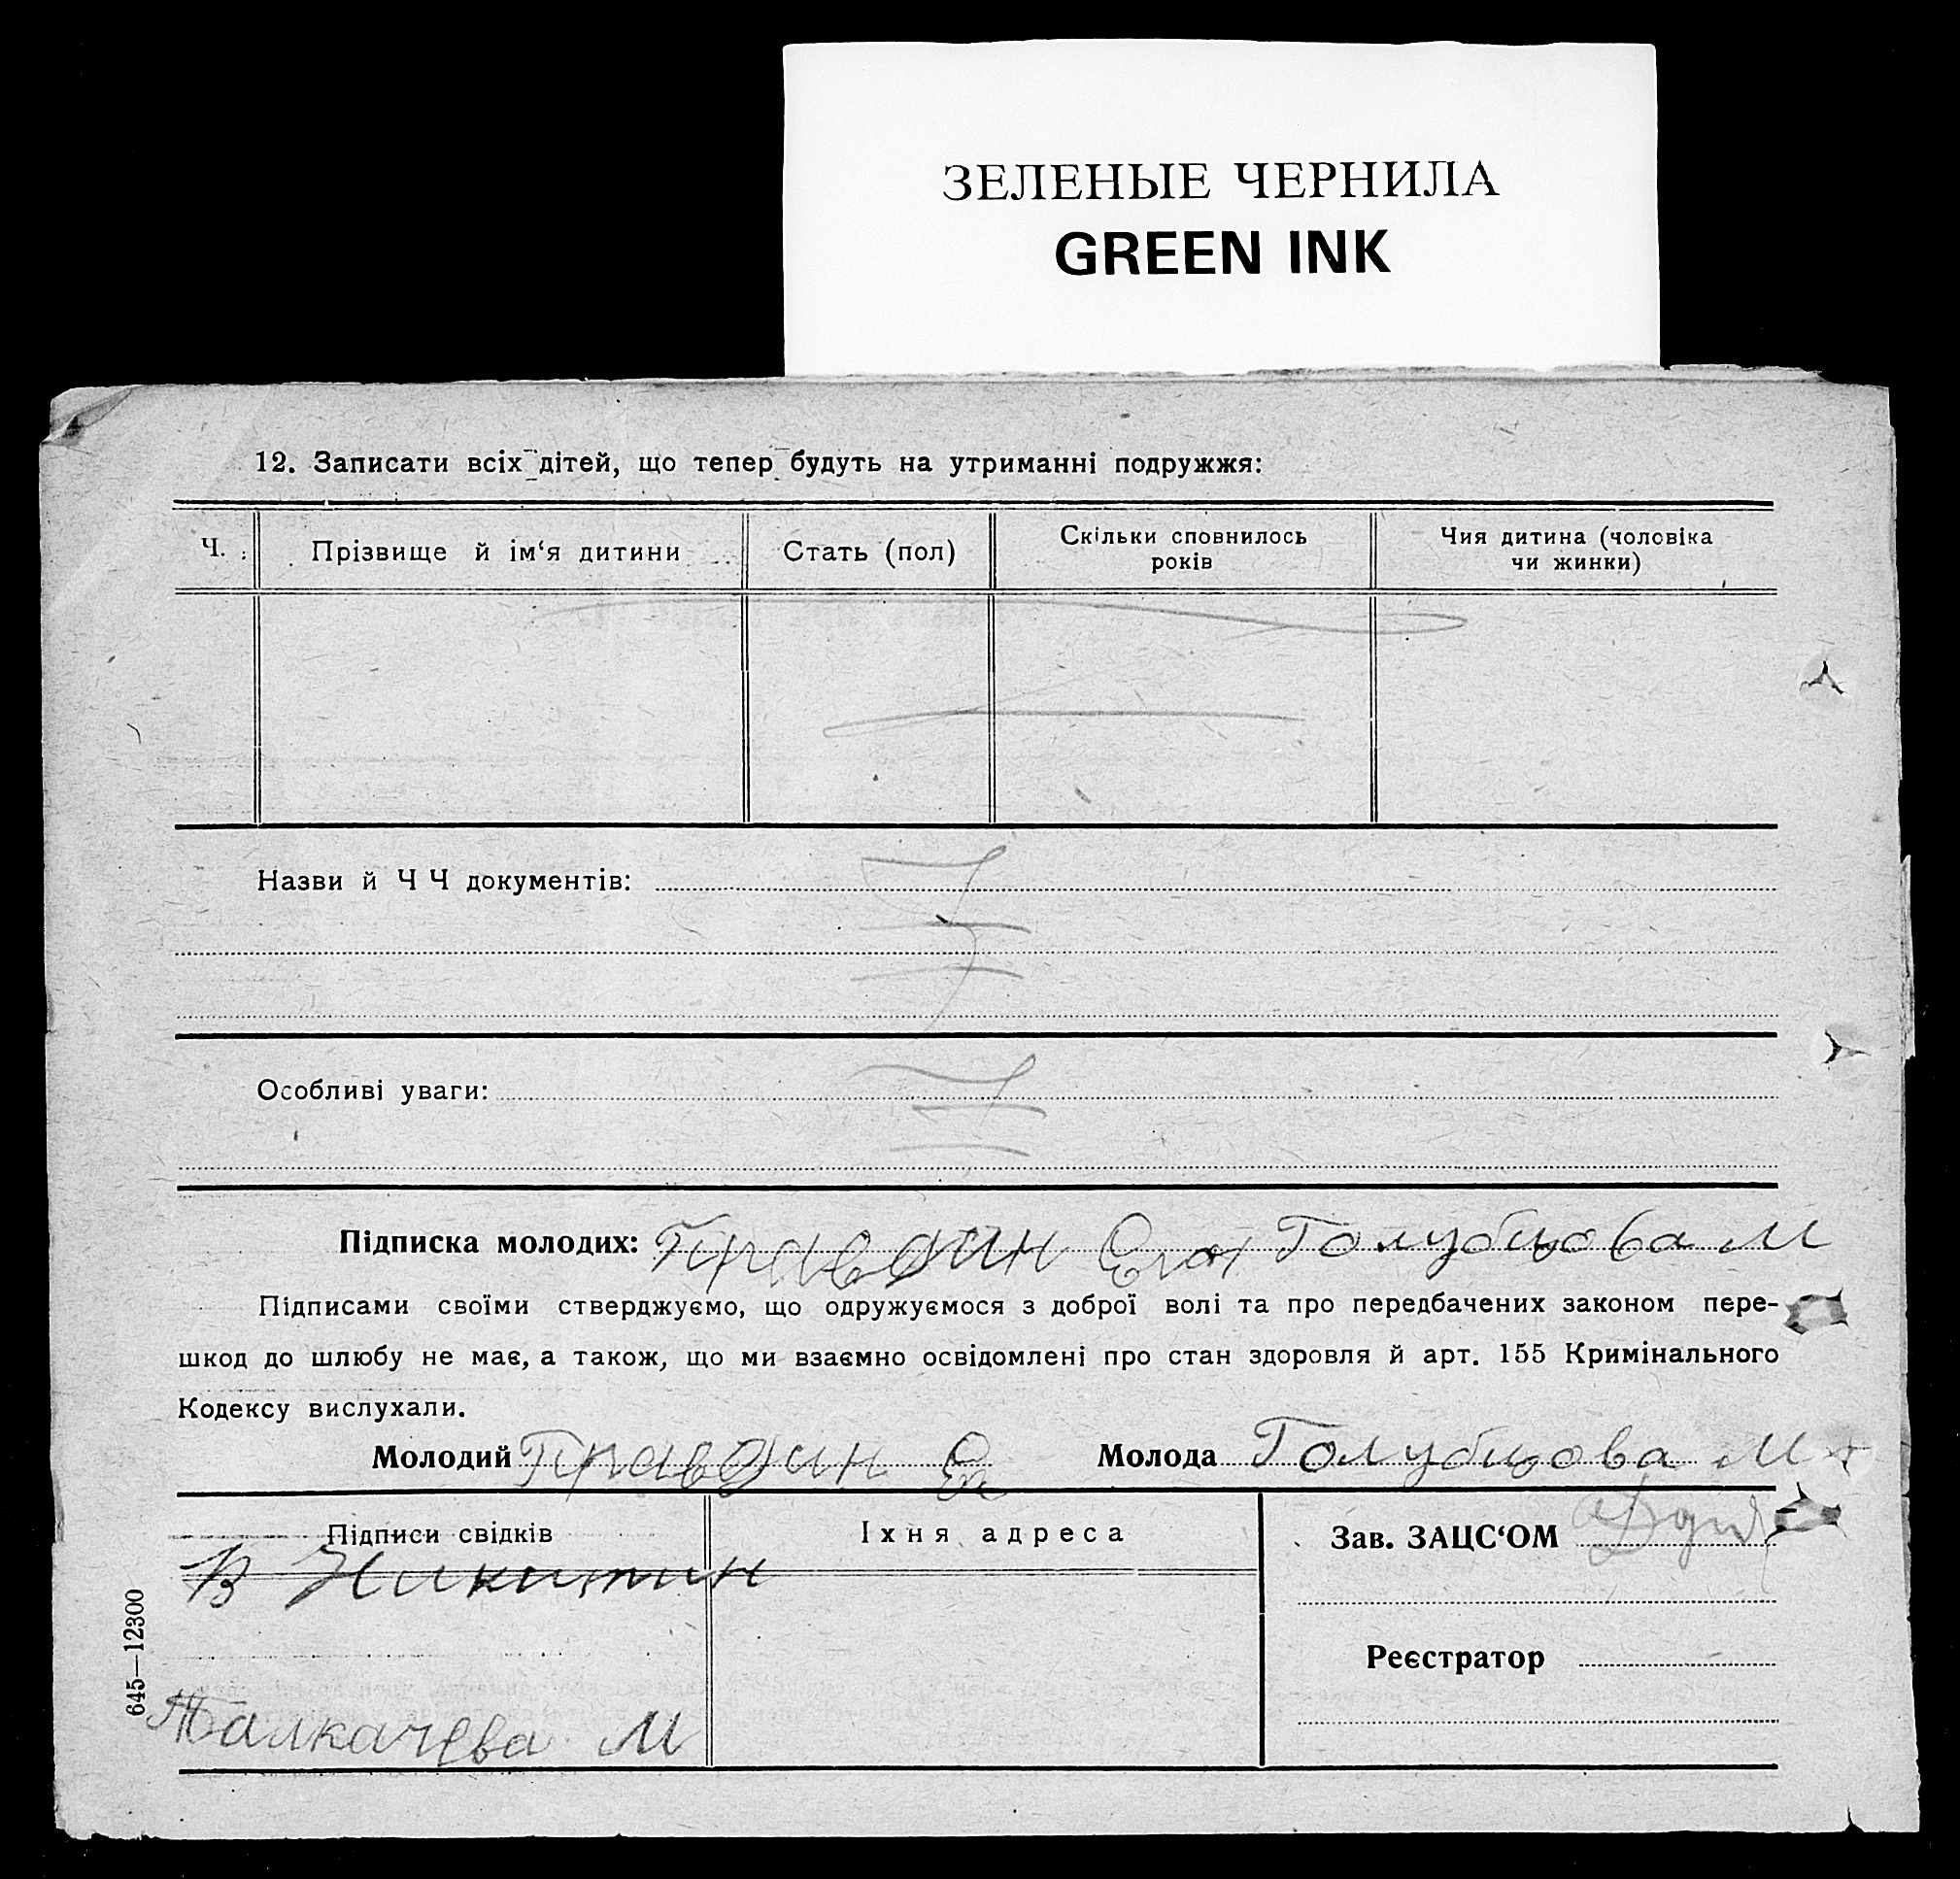 ЗЕЛЕНЫЕ ЧЕРНИЛА
GREEN INK
12. Записати всіх дітей, що тепер будуть на утриманні подружжя:
Ч. Прізвище й ім‘я дитини Стать (пол) Скільки сповнилось років Чия дитина (чоловіка чи жинки)
Назви й Ч Ч документів:
Особливі уваги:
Підписка молодих: Правдин Голубцова М
Підписами своїми стверджуємо, що одружуємося з доброї волі та про передбачених законом пере-
шкод до шлюбу не має, а також, що ми взаємно освідомлені про стан здоровля й арт. 155 Кримінального
Кодексу вислухали.
Молодий Правдин Ег Молода Голубцова М
Підписи свідків Їхня адреса Зав. ЗАЦС‘ОМ
В Никитин
Реєстратор
Талкачева М
645—12300